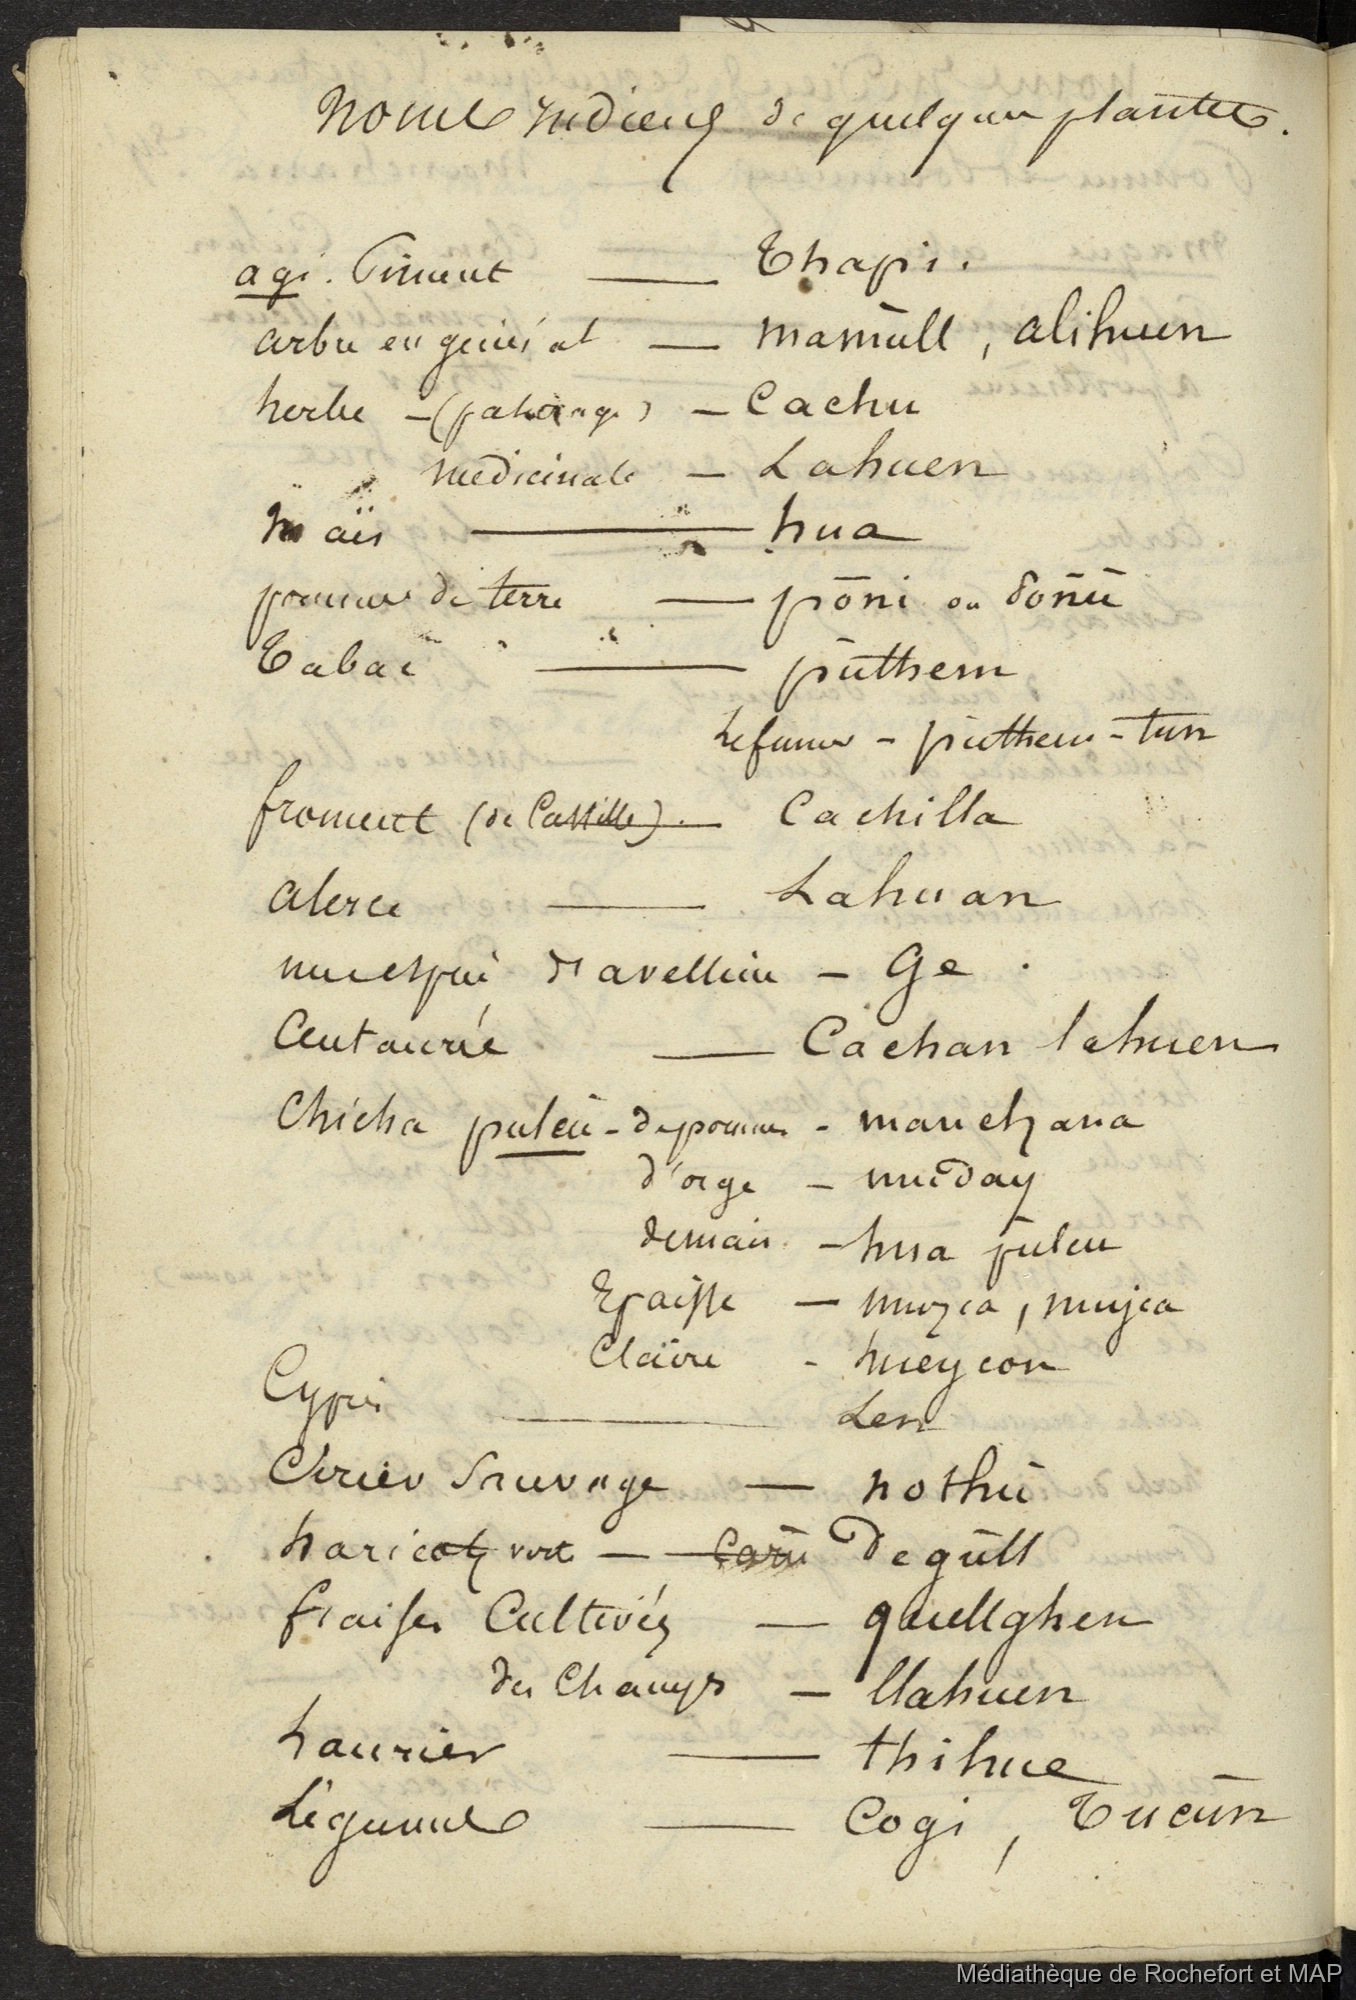 noms indiens de quelques plantes.
agi. Piment — Thapi.
arbre en général — mamüll, alihuen
herbe – (paturage) – Cachu
medicinale – Lahuen
maïs — hua
pommes de terre — pōni ou dōñū
Tabac — pūthem
le fumer – pūthem-tun
froment (de Castille). — Cachilla
alerce — Lahuan
une espèce d'avellina – Ge.
Centaurée — Cachan lahuen
Chicha pulcū – de pommes – manchana
d'orge – muday
de maïs – hua pulcu
Epaisse — muzca, mujca
Claire – hueycon
Cyprès — Len
Cerisier Sauvage — nothū
haricots verts — Carü Degüll
fraises Cultivées — quellghen
des Champs – llahuen
Laurier — thihue
Légumes — Cogi, Tucün
Médiathèque de Rochefort et MAP